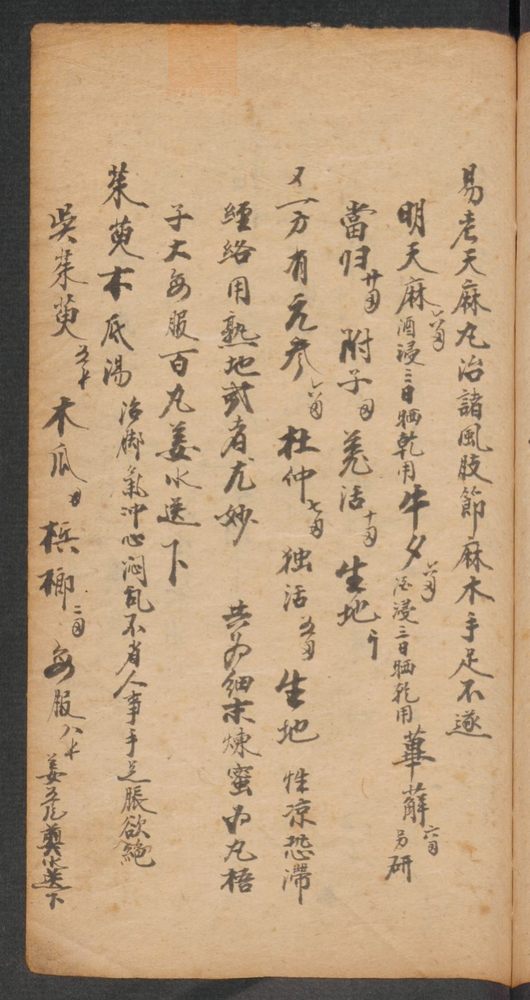 易老天麻丸治諸風肢節麻木手足不遂
明天麻六两酒浸三日晒乾用牛夕六两酒浸三日晒乾用萆薢六两另研
當归廿两附子两羗活十两生地斤
又一方有玄参六两杜仲七两独活五两生地性凉恐滯
經絡用熟地或者尤妙 共為細末煉蜜為丸梧
子大每服百丸姜水送下
茱萸木瓜湯治脚氣冲心悶乱不省人事手足脹欲絶
吳茱萸五钱木瓜两梹榔二两每服八钱姜五片煎水送下